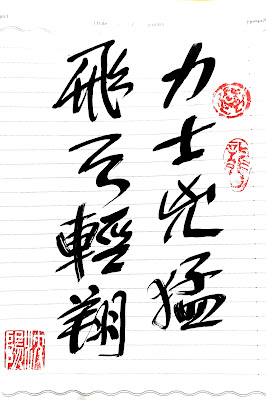 力士兇猛
飛弓輕翔